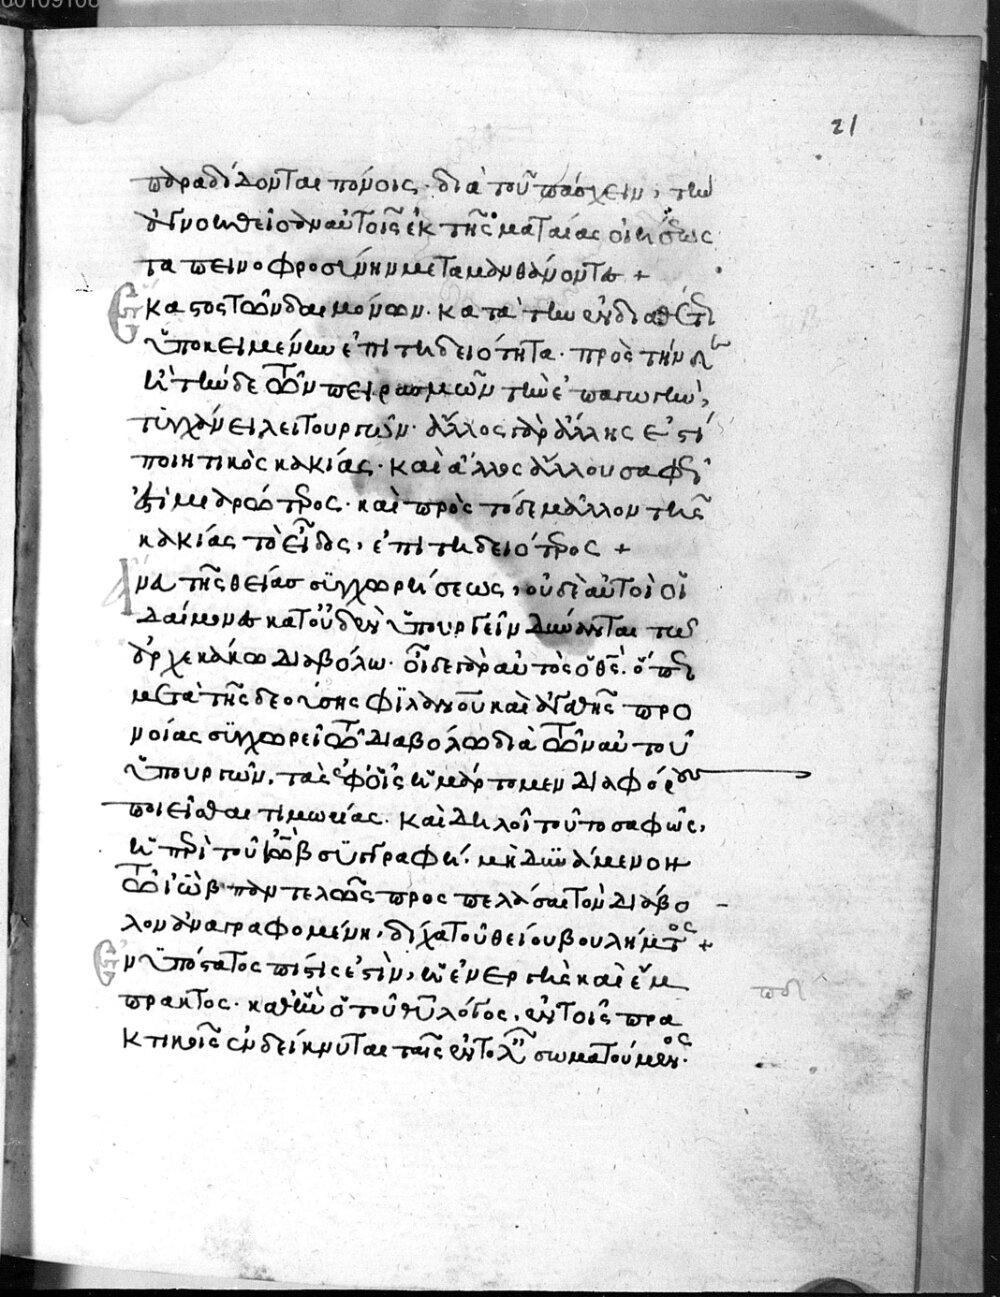 21
παραδίδονται πόνοις· διὰ τοῦ πάσχειν, τὴν
ἀγνοηθεῖσαν αὐτοῖς ἐκ τῆς ματαίας οἰήσεως
ταπεινοφροσύνην μεταμανθάνοντες +
Ἕκαστος τῶν δαιμόνων· κατὰ τὴν ἐνδιαθέτως
ὑποκειμένην ἐπιτηδειότητα· πρὸς τὴν
ἢ τήνδε τῶν πειρασμῶν τὴν ἐπαγωγὴν,
τυγχάνει λειτουργῶν· ἄλλος γὰρ ἄλλης ἐστὶ
ποιητικὸς κακίας· καὶ ἄλλος ἄλλου σαφῶς
μιαρώτερος· καὶ πρὸς τόδε μᾶλλον τῆς
κακίας τὸ εἶδος, ἐπιτηδειότερος +
Ἄνα τῆς θείας συγχωρήσεως, οὐδὲ αὐτοὶ οἱ
δαίμονες κατ' οὐδὲν ὑπουργεῖν δύνανται τῷ
ἀρχεκάκω διαβόλω· οἶδε γὰρ αὐτὸς ὁ θς· ὅπως
μετὰ τῆς δεούσης φιλανου καὶ ἀγαθῆς προ
νοίας συγχωρεῖ τῶ διαβόλω διὰ τῶν αὐτοῦ
ὑπουργῶν, τὰς ἐφ' οἷς ἡμάρτομεν διαφόρους
ποιεῖσθαι τιμωρίας. καὶ δηλοῖ τοῦτο σαφῶς,
ἡ περὶ τοῦ ἰὼβ συγγραφή· μὴ δυνάμενον
τῶ ἰὼβ παντελῶς προσπελάσαι τὸν διάβο
λον ἀναγραφομένη, δίχα τοῦ θείου βουλήματος +
Ἐνυπόστατος πίστις ἐστὶν, ἡ ἐνεργὴς καὶ ἔμ
πρακτος· καθ' ἣν ὁ τοῦ θυ λόγος, ἐν τοῖς πρα
κτικοῖς ἐνδείκνυται ταῖς ἐντολαῖς σωματούμενος·